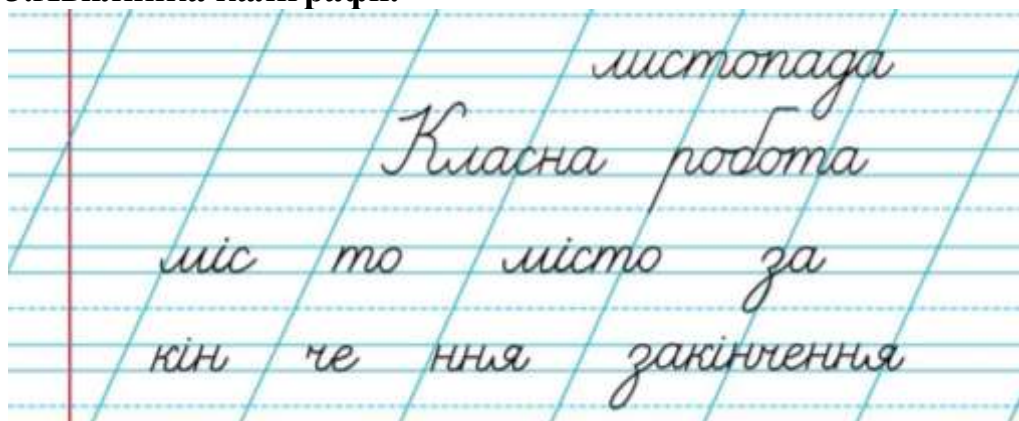 листопада
Класна робота
міс то місто за
кін че ння закінчення